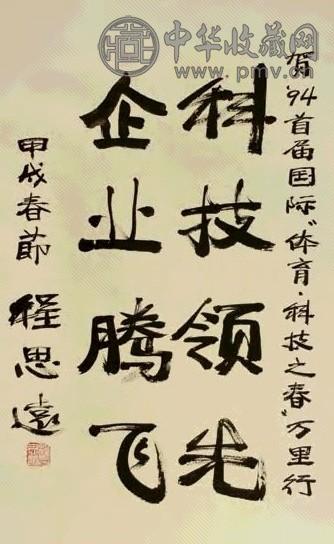 中华收藏网
www.pmv.cn
贺'94首届国际"体育·科技之春"万里行
科技领先
企业腾飞
甲戌春节
程思远